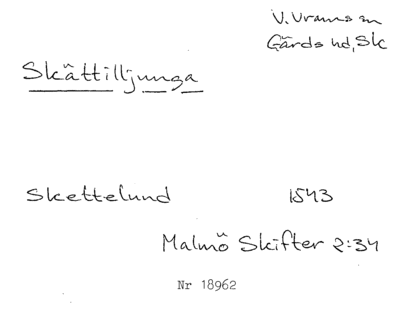 V. Vrams sn
Gärds hd, Sk
Skättilljunga
Skettelund 1543
Malmö Skifter 2:34
Nr 18962